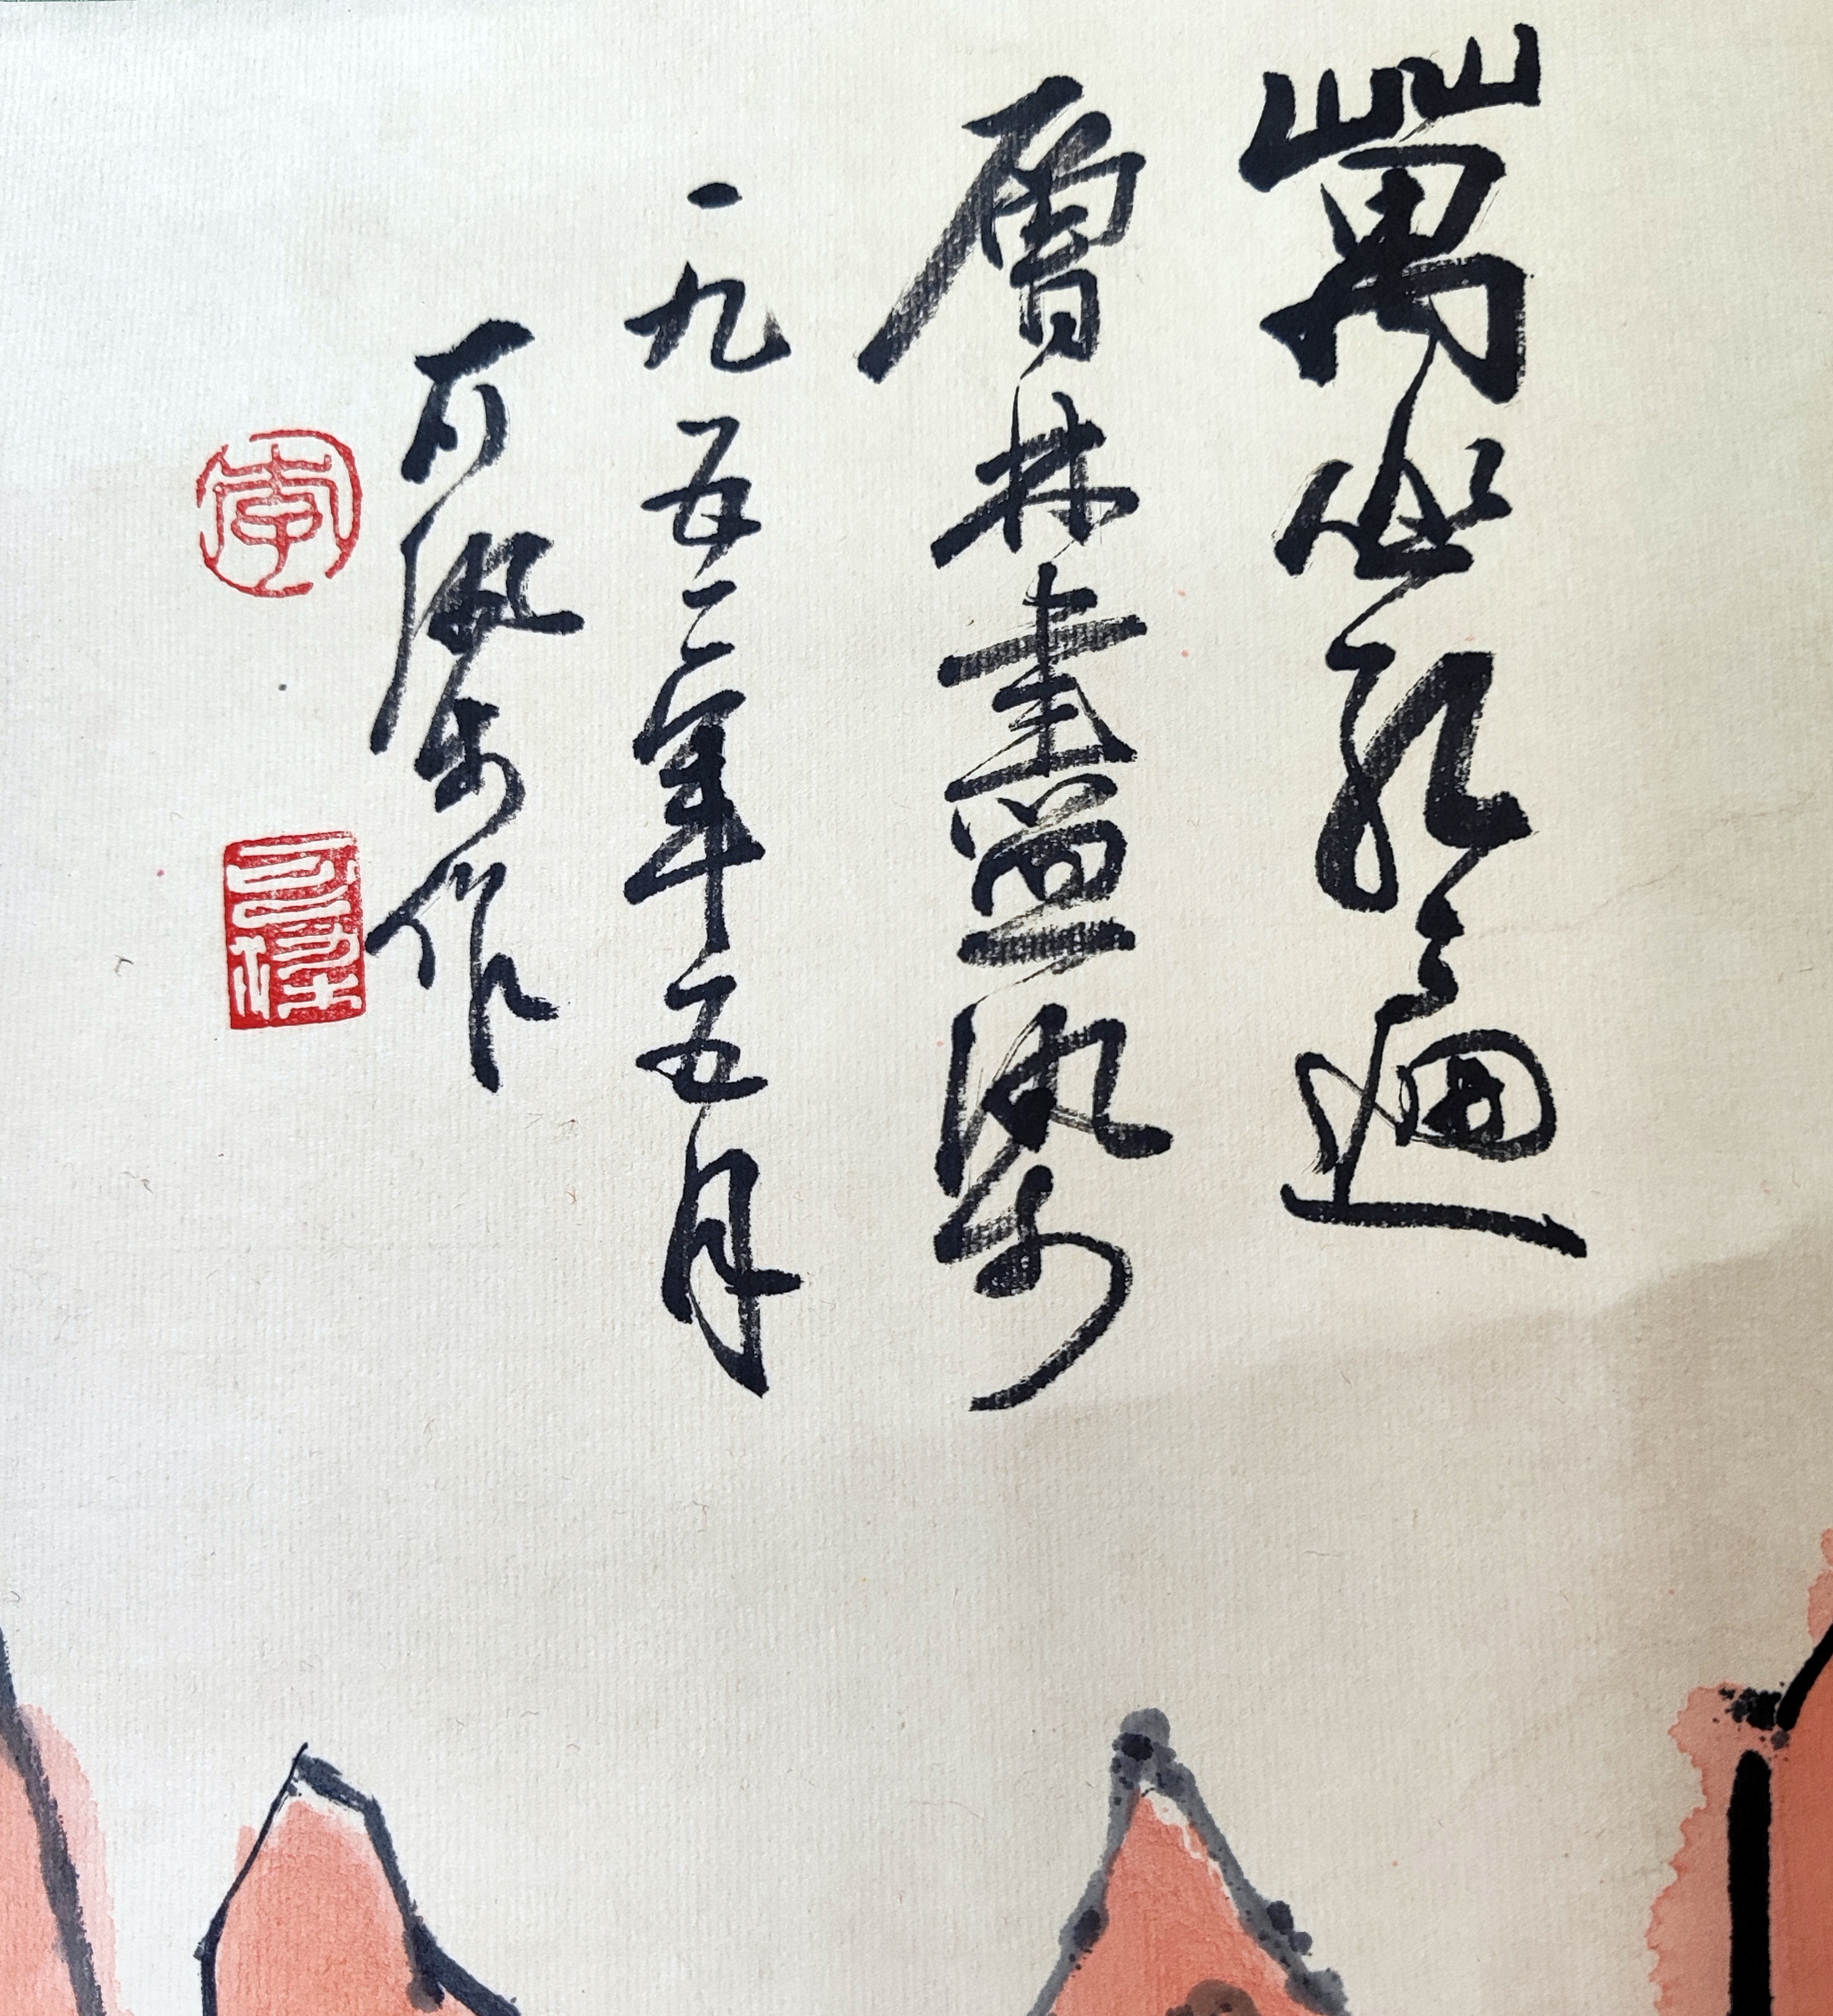 萬山紅遍
層林盡染
一九五二年五月
可染作
李
可染